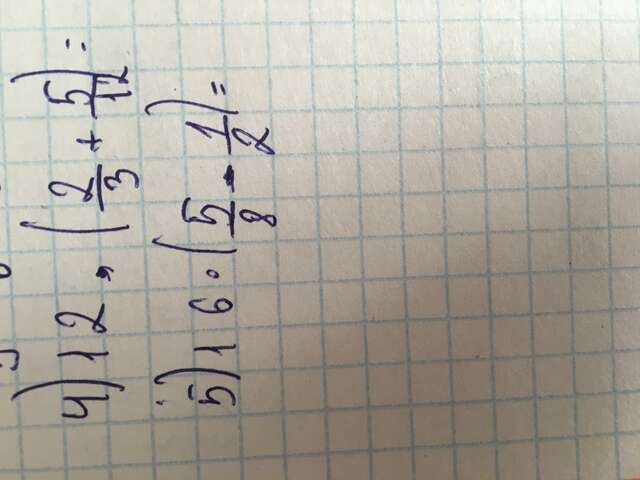 4) 12 · (2/3 + 5/12) =
5) 16 · (5/8 - 1/2) =